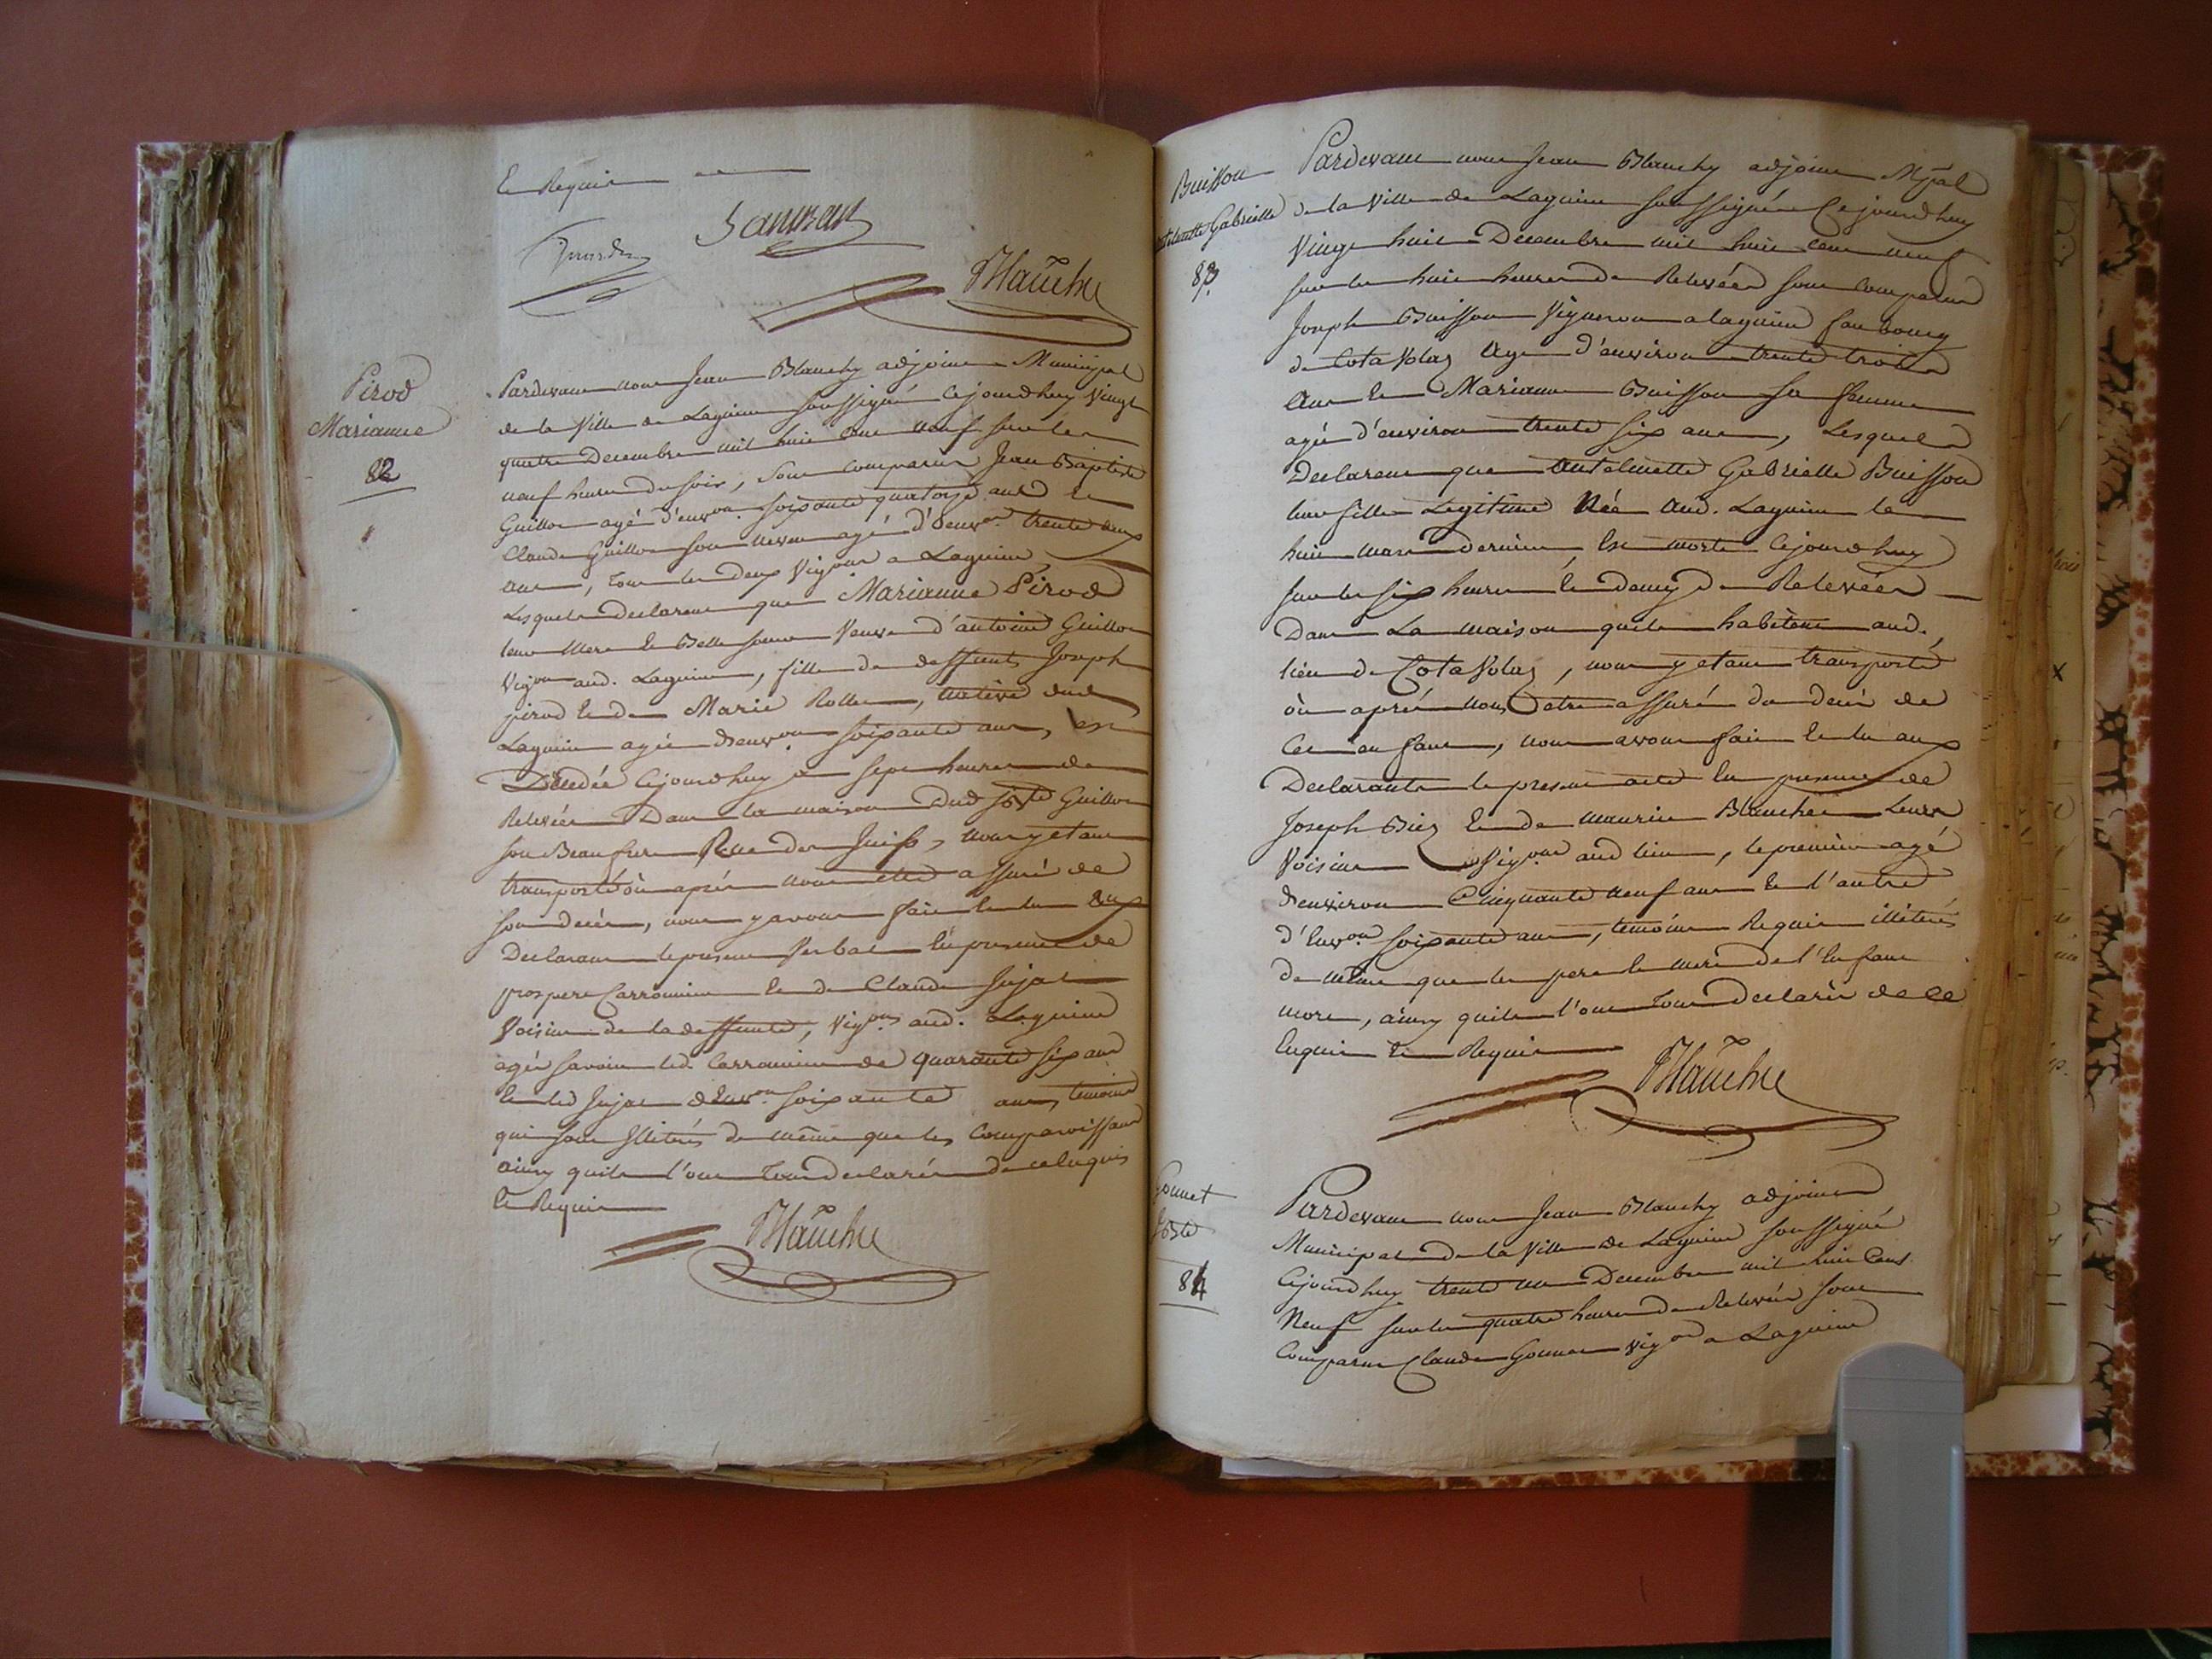 et Requis
Blanchy
Pirod
Marianne
82
Pardevant nous Jean Blanchy adjoint Municipal
de la Ville de Lagnieu soussigné Cejourdhuy Vingt
quatre Decembre mil huit cent neuf sur les
neuf heures du soir, sont comparus Jean Baptiste
Guillon agé d'envon. soixante quatorze ans et
Claude Guillon son neveu agé d'envon. trente deux
ans, tous les deux Vigons a Lagnieu
Lesquels declarent que Marianne Pirod
leur Mere et Belle soeur Veuve d'antoine Guillon
Vigon aud. Lagnieu, fille de deffunts Joseph
pirod et de Marie Rollet, native dud
Lagnieu agée d'envon. soixante ans, est
Décédée Cejourdhuy a sept heures de
Relevée Dans la maison Dud Jn Bte Guillon
son Beaufrere Rue des Juifs, nous y etant
transporté où après nous etre assuré de
son decès, nous y avons fait et lu aux
Declarants le present Verbal en presence de
prospere Carronnier et de Claude Jujat
Voisins de la deffunte, Vigons aud. Lagnieu
agés savoir led. Carronnier de quarante six ans
et led Jujat d'envon. soixante ans, temoins
qui sont Illiterés de même que les Comparoissants
ainsy quils l'ont tous declarés de ce enquis
et Requis
Blanchy
Buisson
antelmette Gabrielle
83
Pardevant nous Jean Blanchy adjoint Mpal
de la Ville de Lagnieu soussigné Cejourdhuy
Vingt huit Decembre mil huit cent neuf
sur les huit heures de Relevée sont comparus
Joseph Buisson Vigneron a lagnieu faubourg
de Cota Volaz Agé d'environ trente trois
Ans et Marianne Buisson sa femme
agée d'environ trente six ans, Lesquels
Declarent que antelmette Gabrielle Buisson
leur fille Legitime Née aud. Lagnieu le
huit mars dernier, Est morte Cejourdhuy
sur les six heures et demy de Relevée
Dans La maison quils habitent aud.
lieu de Cota Volaz, nous y etant transporté
où après nous etre assuré du decès de
Cet enfant, nous avons fait et lu aux
Declarants le present acte en presence de
Joseph Biez et de maurice Blanchet Leurs
Voisins Vigons aud lieu, le premier agé
d'environ Cinquante neuf ans et l'autre
d'Envon soixante ans, temoins Requis illiterés
de même que les pere et mere de l'Enfant
mort, ainsy quils l'ont tous declarés de ce
Enquis et Requis
Blanchy
Gonnet
JBte
84
Pardevant nous Jean Blanchy adjoint
Municipal de la Ville de Lagnieu soussigné
Cejourdhuy trente un Decembre mil huit Cent
Neuf sur les quatre heures de Relevée sont
Comparus Claude Gonnet Vigon a Lagnieu